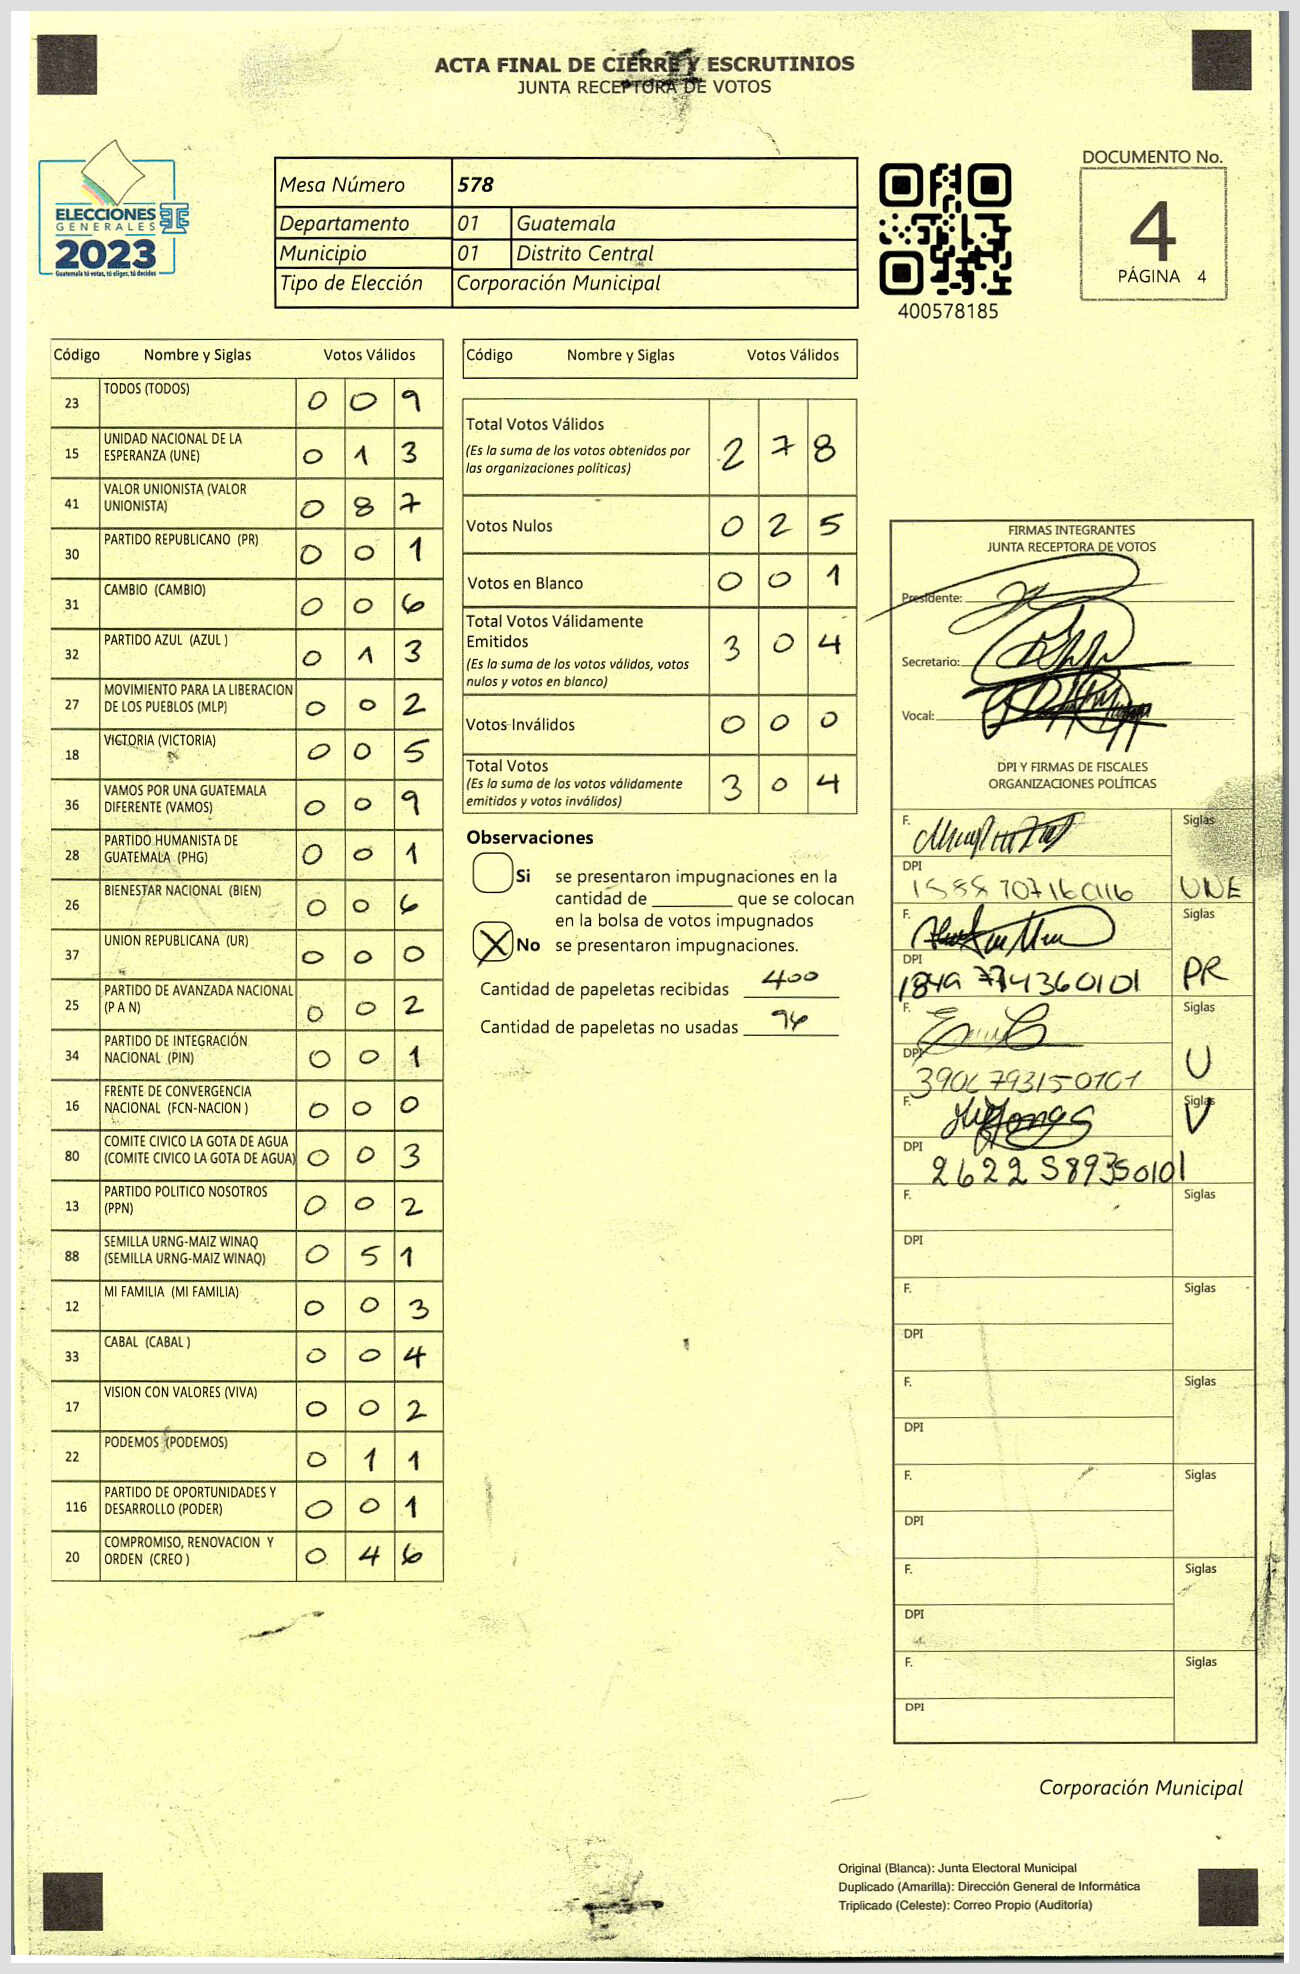 ACTA FINAL DE CIERRE Y ESCRUTINIOS
JUNTA RECEPTORA DE VOTOS
ELECCIONES
GENERALES
2023
Guatemala tú votas, tú eliges, tú decides
Mesa Número 578
Departamento 01 Guatemala
Municipio 01 Distrito Central
Tipo de Elección Corporación Municipal
400578185
DOCUMENTO No.
4
PÁGINA 4
Código Nombre y Siglas Votos Válidos
23 TODOS (TODOS) 0 0 9
15 UNIDAD NACIONAL DE LA ESPERANZA (UNE) 0 1 3
41 VALOR UNIONISTA (VALOR UNIONISTA) 0 8 7
30 PARTIDO REPUBLICANO (PR) 0 0 1
31 CAMBIO (CAMBIO) 0 0 6
32 PARTIDO AZUL (AZUL ) 0 1 3
27 MOVIMIENTO PARA LA LIBERACION DE LOS PUEBLOS (MLP) 0 0 2
18 VICTORIA (VICTORIA) 0 0 5
36 VAMOS POR UNA GUATEMALA DIFERENTE (VAMOS) 0 0 9
28 PARTIDO HUMANISTA DE GUATEMALA (PHG) 0 0 1
26 BIENESTAR NACIONAL (BIEN) 0 0 6
37 UNION REPUBLICANA (UR) 0 0 0
25 PARTIDO DE AVANZADA NACIONAL (P A N) 0 0 2
34 PARTIDO DE INTEGRACIÓN NACIONAL (PIN) 0 0 1
16 FRENTE DE CONVERGENCIA NACIONAL (FCN-NACION ) 0 0 0
80 COMITE CIVICO LA GOTA DE AGUA (COMITE CIVICO LA GOTA DE AGUA) 0 0 3
13 PARTIDO POLITICO NOSOTROS (PPN) 0 0 2
88 SEMILLA URNG-MAIZ WINAQ (SEMILLA URNG-MAIZ WINAQ) 0 5 1
12 MI FAMILIA (MI FAMILIA) 0 0 3
33 CABAL (CABAL ) 0 0 4
17 VISION CON VALORES (VIVA) 0 0 2
22 PODEMOS (PODEMOS) 0 1 1
116 PARTIDO DE OPORTUNIDADES Y DESARROLLO (PODER) 0 0 1
20 COMPROMISO, RENOVACION Y ORDEN (CREO ) 0 4 6
Código Nombre y Siglas Votos Válidos
Total Votos Válidos 2 7 8
(Es la suma de los votos obtenidos por
las organizaciones políticas)
Votos Nulos 0 2 5
Votos en Blanco 0 0 1
Total Votos Válidamente
Emitidos 3 0 4
(Es la suma de los votos válidos, votos
nulos y votos en blanco)
Votos Inválidos 0 0 0
Total Votos 3 0 4
(Es la suma de los votos válidamente
emitidos y votos inválidos)
Observaciones
Si se presentaron impugnaciones en la
cantidad de ________ que se colocan
en la bolsa de votos impugnados
X No se presentaron impugnaciones.
Cantidad de papeletas recibidas 400
Cantidad de papeletas no usadas 96
FIRMAS INTEGRANTES
JUNTA RECEPTORA DE VOTOS
Presidente:
Secretario:
Vocal:
DPI Y FIRMAS DE FISCALES
ORGANIZACIONES POLÍTICAS
F. Siglas
DPI 1588 70716 0116 UNE
F. Siglas
DPI PR
F. Siglas
DPI U
F. Siglas
DPI 2622 58935 0101 V
F. Siglas
DPI
F. Siglas
DPI
F. Siglas
DPI
F. Siglas
DPI
F. Siglas
DPI
F. Siglas
DPI
Corporación Municipal
Original (Blanca): Junta Electoral Municipal
Duplicado (Amarilla): Dirección General de Informática
Triplicado (Celeste): Correo Propio (Auditoría)